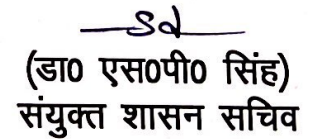 Sd
(डा० एस०पी० सिंह)
संयुक्त शासन सचिव